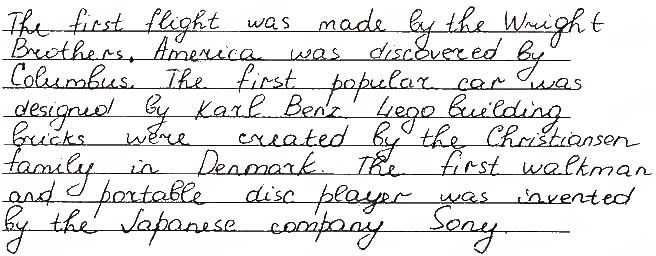 The first flight was made by the Wright
Brothers. America was discovered by
Columbus. The first popular car was
designed by Karl Benz Lego building
bricks were created by the Christiansen
family in Denmark. The first walkman
and portable disc player was invented
by the Japanese company Sony.